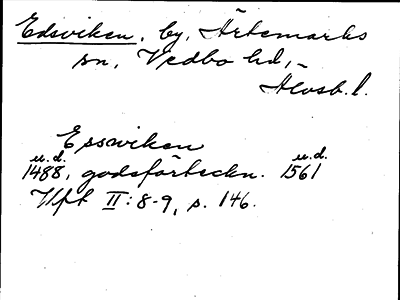 Edsviken, by, Ärtemarks
sn, Vedbo hd,
Älvsb. l.
Esswiken
u.d. u.d.
1488, godsförteckn. 1561
Hft II: 8-9, s. 146.